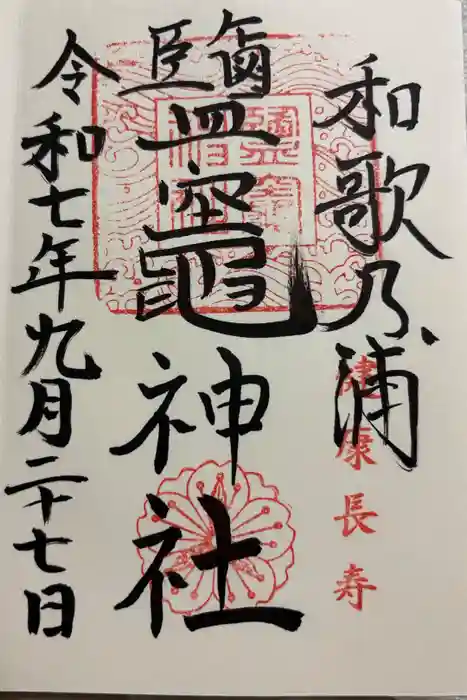 和歌乃浦
健康長寿
鹽竈神社
令和七年九月二十七日